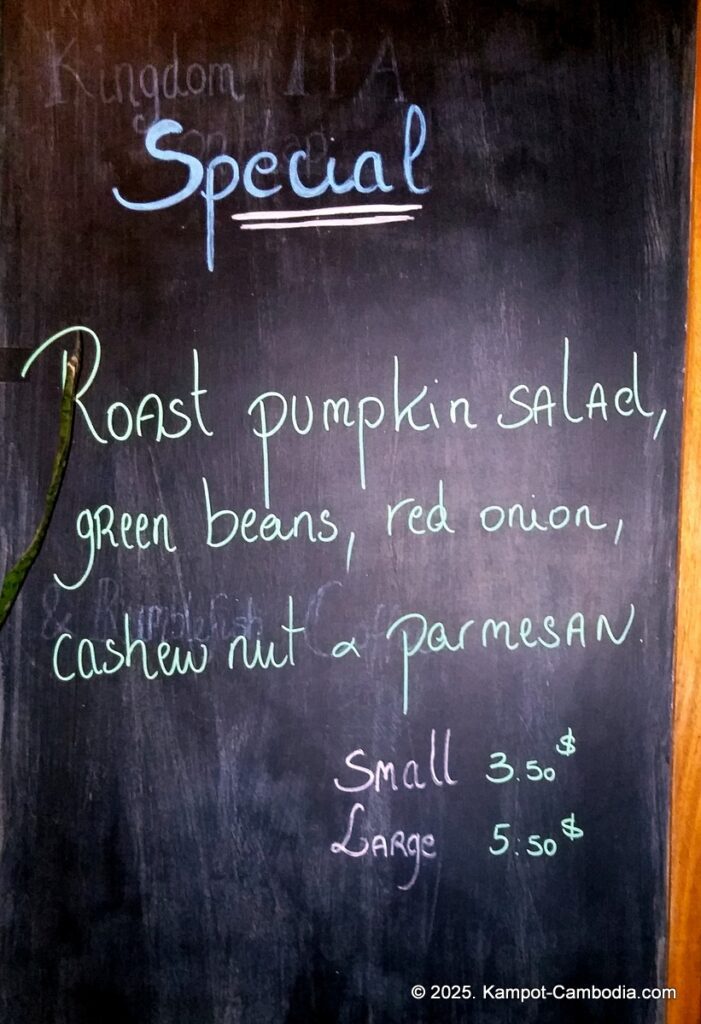 Kingdom IPA
Special
Roast pumpkin salad,
green beans, red onion,
& Rumblefish
cashew nut & parmesan.
Small 3.50$
Large 5.50$
© 2025. Kampot-Cambodia.com